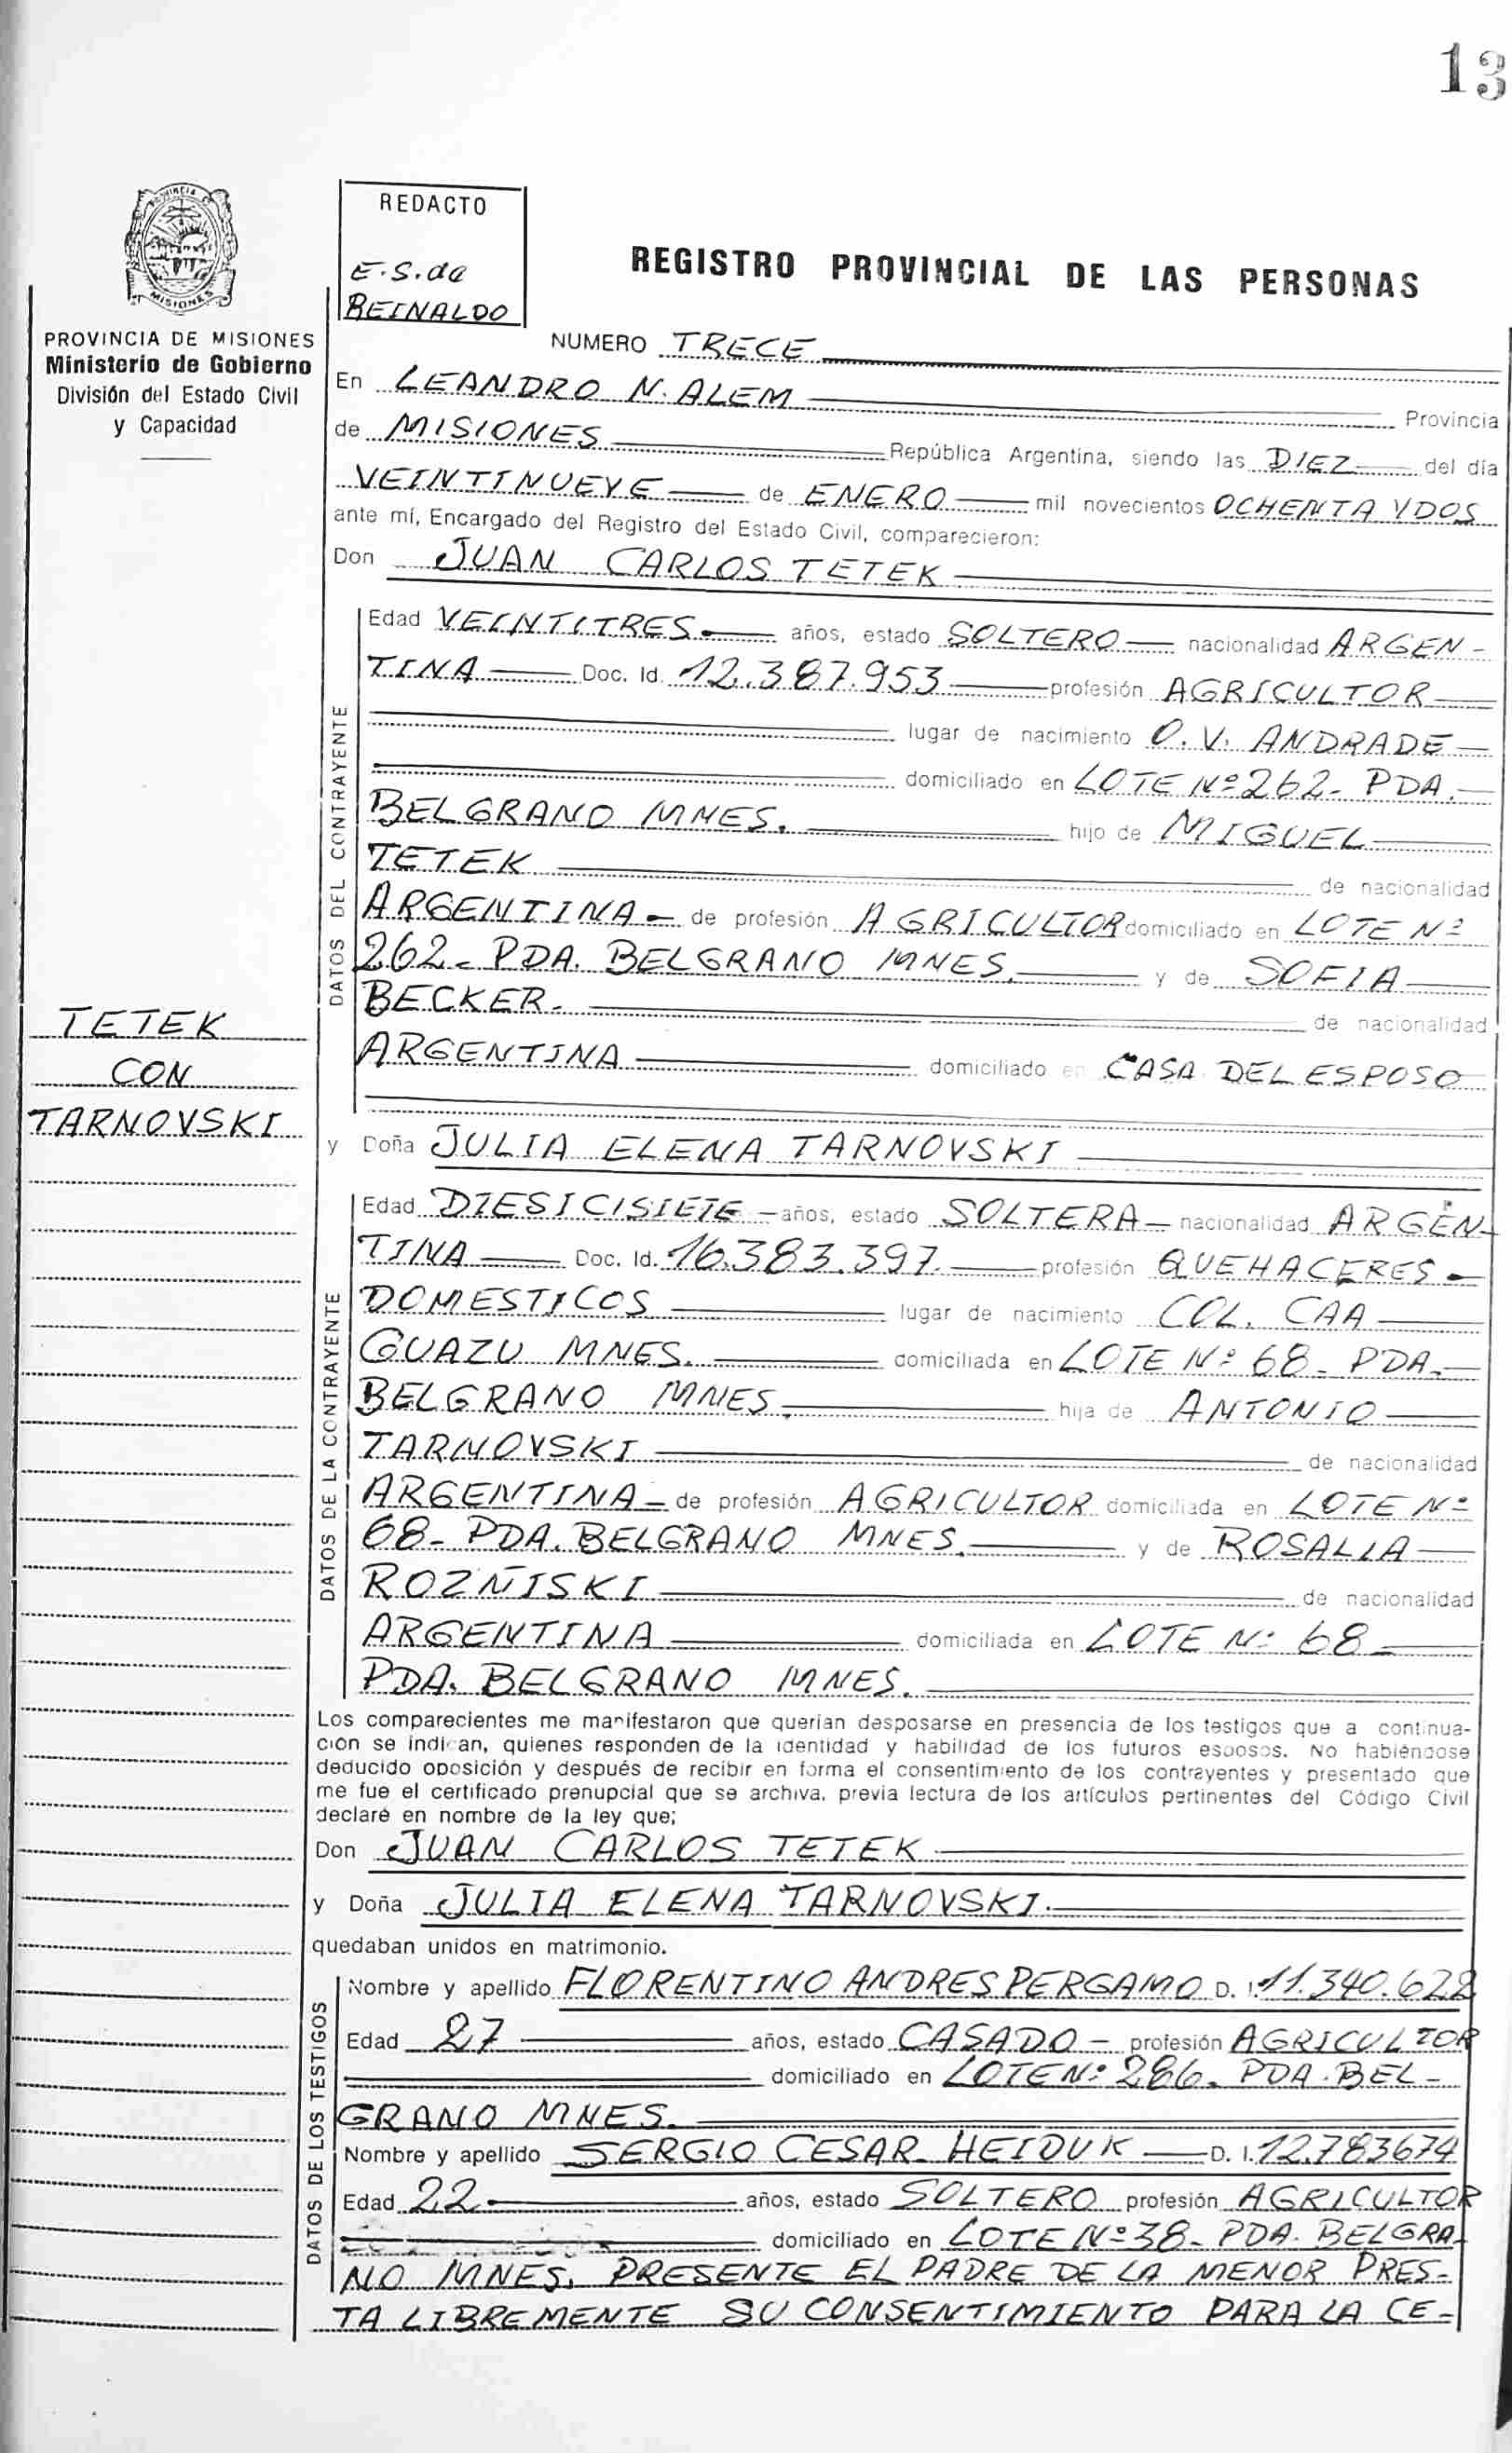 13
REDACTO
E.S. de
REINALDO
REGISTRO PROVINCIAL DE LAS PERSONAS
PROVINCIA DE MISIONES
Ministerio de Gobierno
División del Estado Civil
y Capacidad
NUMERO TRECE
En LEANDRO N. ALEM Provincia
de MISIONES República Argentina, siendo las DIEZ del día
VEINTINUEVE de ENERO mil novecientos OCHENTA Y DOS
ante mí, Encargado del Registro del Estado Civil, comparecieron:
Don JUAN CARLOS TETEK
DATOS DEL CONTRAYENTE
Edad VEINTITRES años, estado SOLTERO nacionalidad ARGEN-
TINA Doc. Id. 12.387.953 profesión AGRICULTOR
lugar de nacimiento O. V. ANDRADE
domiciliado en LOTE Nº 262- PDA.
BELGRANO MNES. hijo de MIGUEL
TETEK de nacionalidad
ARGENTINA de profesión AGRICULTOR domiciliado en LOTE Nº
262- PDA. BELGRANO MNES. y de SOFIA
BECKER. de nacionalidad
ARGENTINA domiciliado en CASA DEL ESPOSO
TETEK
CON
TARNOVSKI
y Doña JULIA ELENA TARNOVSKI
DATOS DE LA CONTRAYENTE
Edad DIESICISIETE años, estado SOLTERA nacionalidad ARGEN-
TINA Doc. Id. 16.383.397. profesión QUEHACERES
DOMESTICOS lugar de nacimiento COL. CAA
GUAZU MNES. domiciliada en LOTE Nº 68- PDA.
BELGRANO MNES. hija de ANTONIO
TARNOVSKI de nacionalidad
ARGENTINA de profesión AGRICULTOR domiciliada en LOTE Nº
68- PDA. BELGRANO MNES. y de ROSALIA
ROZÑISKI de nacionalidad
ARGENTINA domiciliada en LOTE Nº 68
PDA. BELGRANO MNES.
Los comparecientes me manifestaron que querían desposarse en presencia de los testigos que a continua-
ción se indican, quienes responden de la identidad y habilidad de los futuros esposos. No habiéndose
deducido oposición y después de recibir en forma el consentimiento de los contrayentes y presentado que
me fue el certificado prenupcial que se archiva, previa lectura de los artículos pertinentes del Código Civil
declaré en nombre de la ley que;
Don JUAN CARLOS TETEK
y Doña JULIA ELENA TARNOVSKI.
quedaban unidos en matrimonio.
DATOS DE LOS TESTIGOS
Nombre y apellido FLORENTINO ANDRES PERGAMO D. I. 11.340.628
Edad 27 años, estado CASADO - profesión AGRICULTOR
domiciliado en LOTE Nº 286. PDA. BEL-
GRANO MNES.
Nombre y apellido SERGIO CESAR HEIDUK D. I. 12.783674
Edad 22 años, estado SOLTERO profesión AGRICULTOR
domiciliado en LOTE Nº 38- PDA. BELGRA-
NO MNES. PRESENTE EL PADRE DE LA MENOR PRES-
TA LIBREMENTE SU CONSENTIMIENTO PARA LA CE-